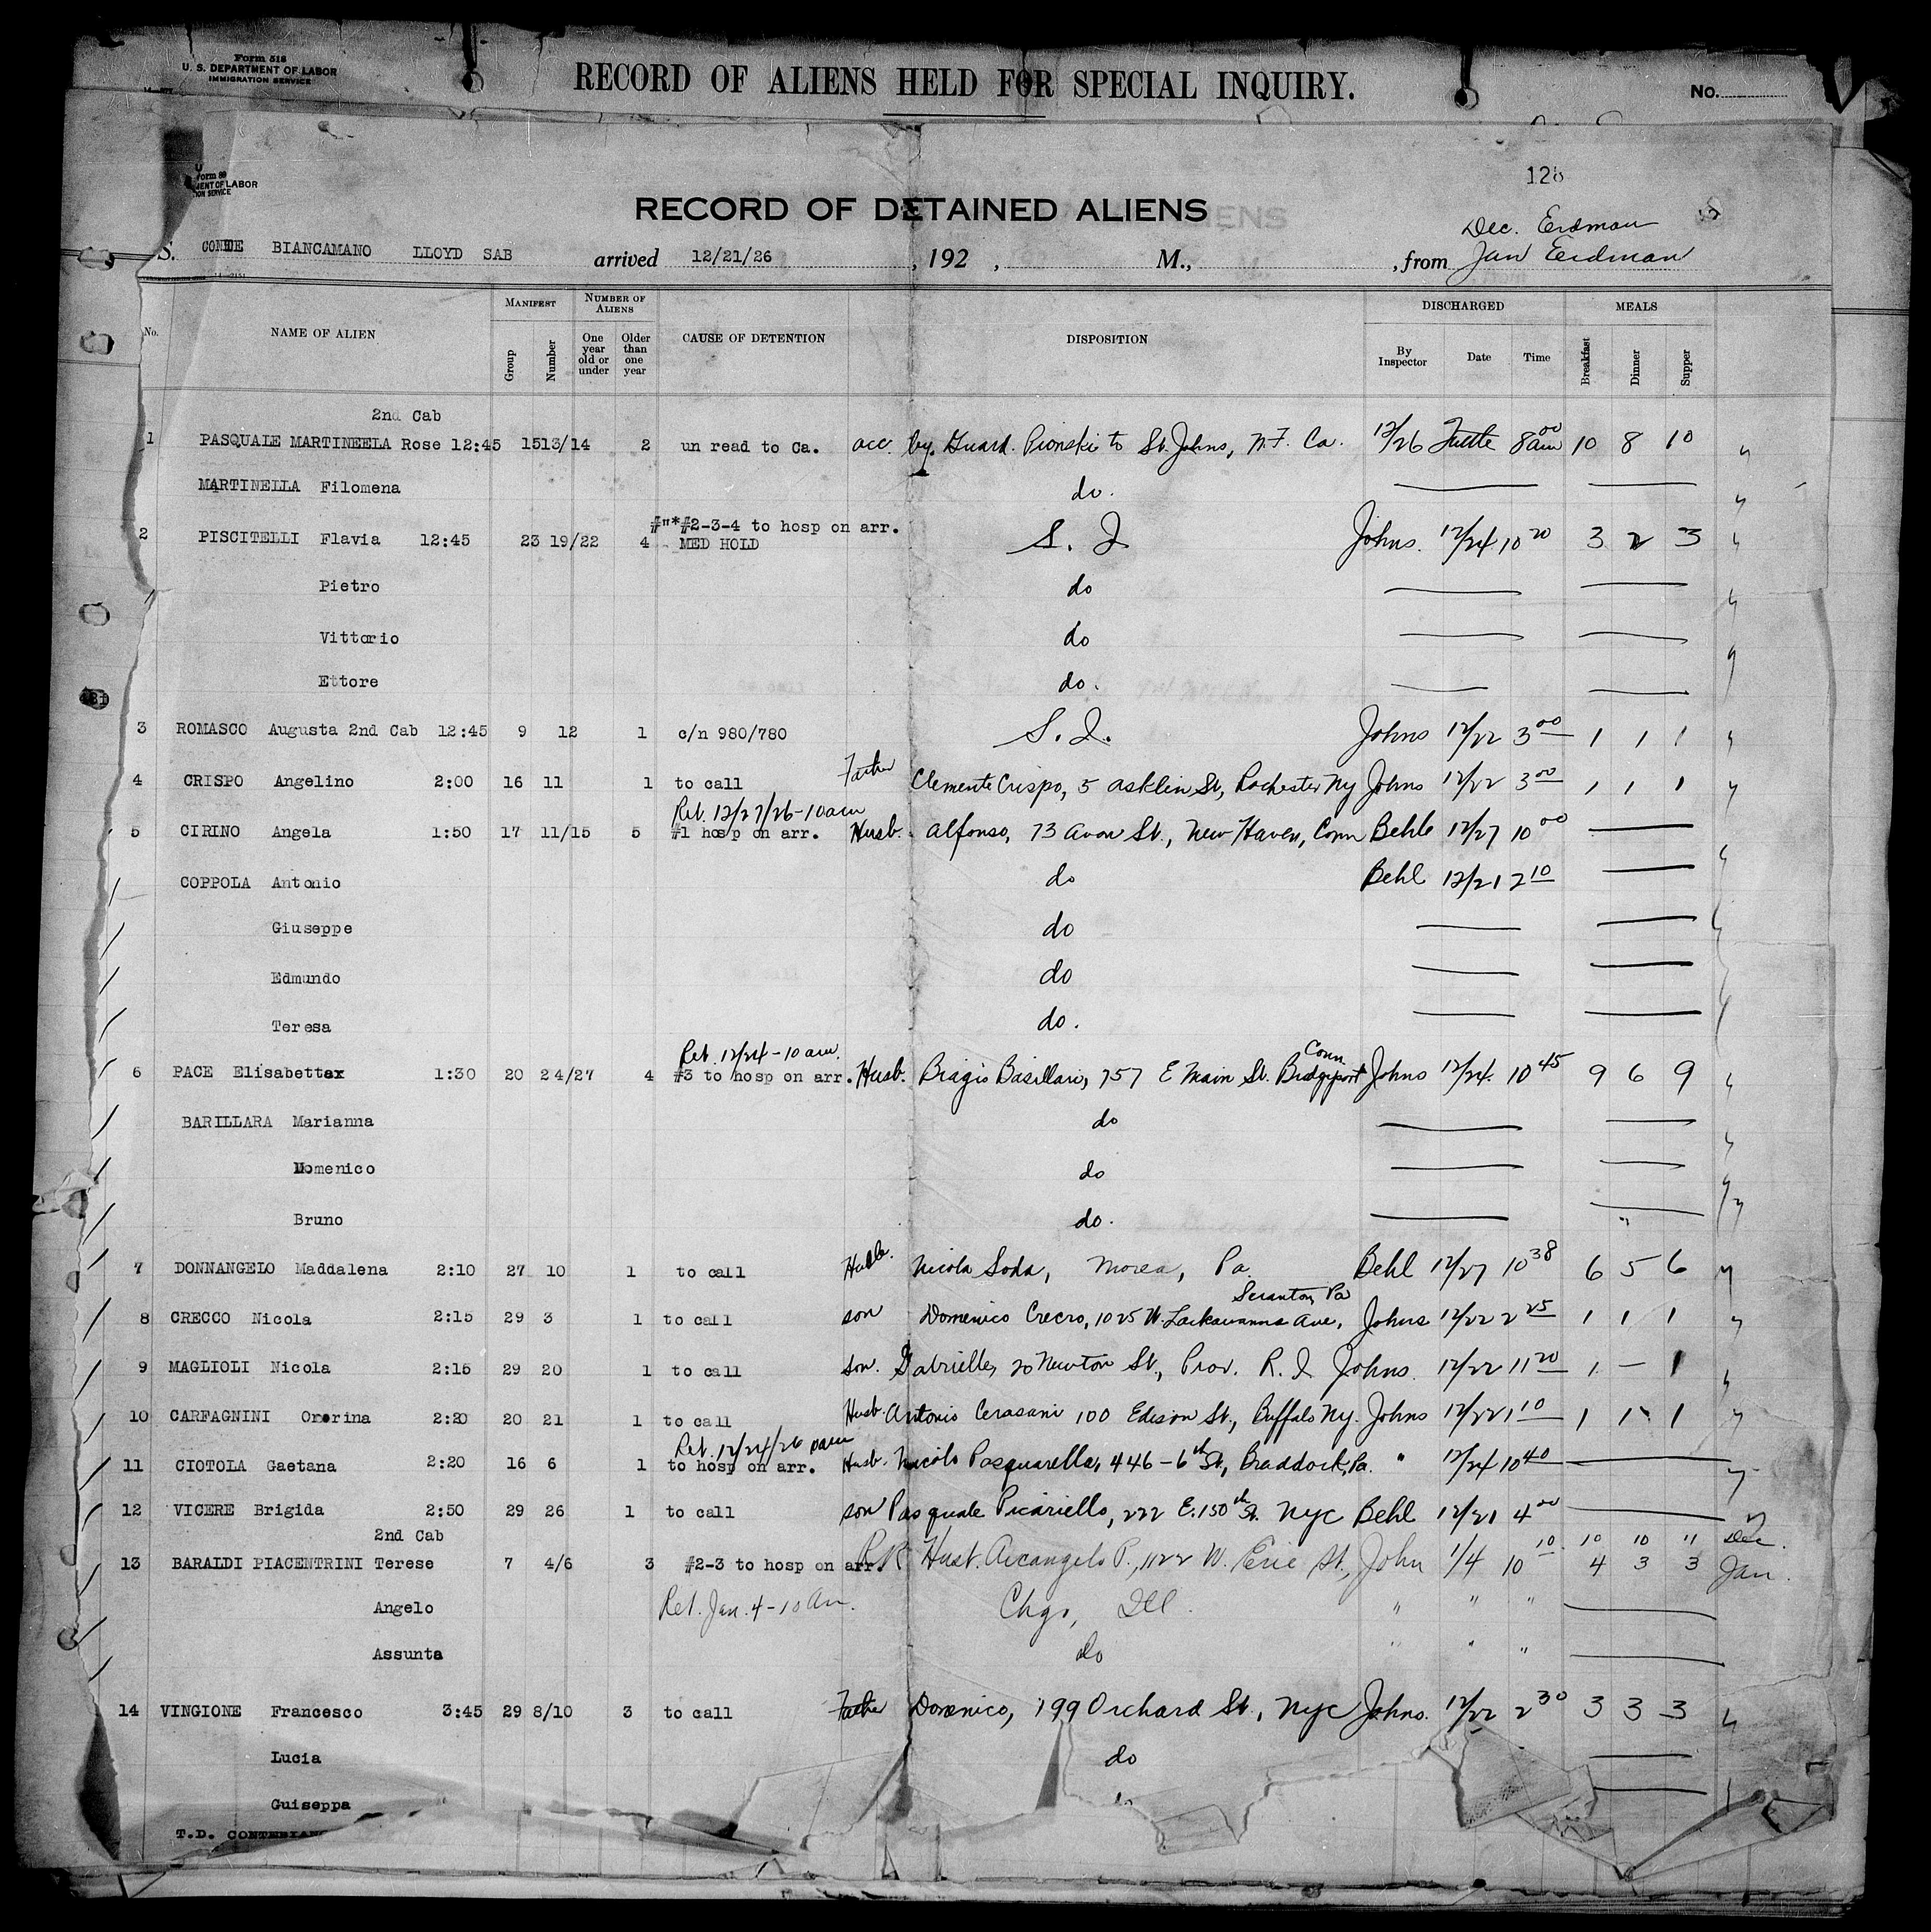 Form 518
U. S. DEPARTMENT OF LABOR
IMMIGRATION SERVICE
RECORD OF ALIENS HELD FOR SPECIAL INQUIRY.
No.
MENT OF LABOR
ION SERVICE
128
RECORD OF DETAINED ALIENS
Dec. Erdman
S. CONTE BIANCAMANO LLOYD SAB arrived 12/21/26, 192 , M., , from Jan Erdman
No. NAME OF ALIEN MANIFEST Group Number NUMBER OF ALIENS One year old or under Older than one year CAUSE OF DETENTION DISPOSITION DISCHARGED By Inspector Date Time MEALS Breakfast Dinner Supper
2nd Cab
1 PASQUALE MARTINEELA Rose 12:45 15 13/14 2 un read to Ca. acc. by Guard. Pionski to St. Johns, N.F. Ca. 12/26 Tuttle 8 00 am 10 8 10
MARTINELLA Filomena do.
#"*#2-3-4 to hosp on arr.
2 PISCITELLI Flavia 12:45 23 19/22 4 MED HOLD S. I Johns. 12/24 10 20 3 2 3
Pietro do
Vittorio do
Ettore do.
3 ROMASCO Augusta 2nd Cab 12:45 9 12 1 c/n 980/780 S. I. Johns 12/22 3 00 1 1 1
4 CRISPO Angelino 2:00 16 11 1 to call Father Clemente Crispo, 5 Asklin St, Rochester NY Johns 12/22 3 00 1 1 1
Ret. 12/27/26-10am
5 CIRINO Angela 1:50 17 11/15 5 #1 hosp on arr. Husb. Alfonso, 73 Avon St., New Haven, Conn Behle 12/27 10 00
COPPOLA Antonio do Behl 12/21 2 10
Giuseppe do
Edmundo do
Teresa do.
Ret. 12/24-10 am. Conn
6 PACE Elisabettax 1:30 20 24/27 4 #3 to hosp on arr. Husb. Biagio Basillari, 757 E Main St. Bridgeport Johns 12/24. 10 45 9 6 9
BARILLARA Marianna do
Domenico do
Bruno do.
7 DONNANGELO Maddalena 2:10 27 10 1 to call Husb. Nicola Soda, Morea, Pa. Behl 12/27 10 38 6 5 6
Scranton Pa
8 CRECCO Nicola 2:15 29 3 1 to call son Domenico Crecro, 1025 W. Lackawanna Ave, Johns 12/22 2 25 1 1 1
9 MAGLIOLI Nicola 2:15 29 20 1 to call son. Gabrielle, 20 Newton St., Prov. R. I Johns. 12/22 11 20 1 — 1
10 CARFAGNINI Onorina 2:20 20 21 1 to call Husb. Antonio Cerasani 100 Edison St., Buffalo NY. Johns 12/22 1 10 1 1 1
Ret. 12/24/26 10am
11 CIOTOLA Gaetana 2:20 16 6 1 to hosp on arr. Husb. Nicolo Pasquarella, 446-6th St, Braddock, Pa. " 12/24 10 40
12 VICERE Brigida 2:50 29 26 1 to call son Pasquale Picariello, 222 E. 150th St. NYC Behl 12/21 4 00
2nd Cab 10 10 11 Dec.
13 BARALDI PIACENTRINI Terese 7 4/6 3 #2-3 to hosp on arr. RR Husb. Arcangelo P., 1122 W. Erie St., John 1/4 10 10 4 3 3 Jan.
Angelo Ret. Jan. 4-10 Am. Chgo, Ill. " " "
Assunta do " " "
14 VINGIONE Francesco 3:45 29 8/10 3 to call Father Domenico, 199 Orchard St., NYC Johns. 12/22 2 30 3 3 3
Lucia do
Guiseppa
T.D.